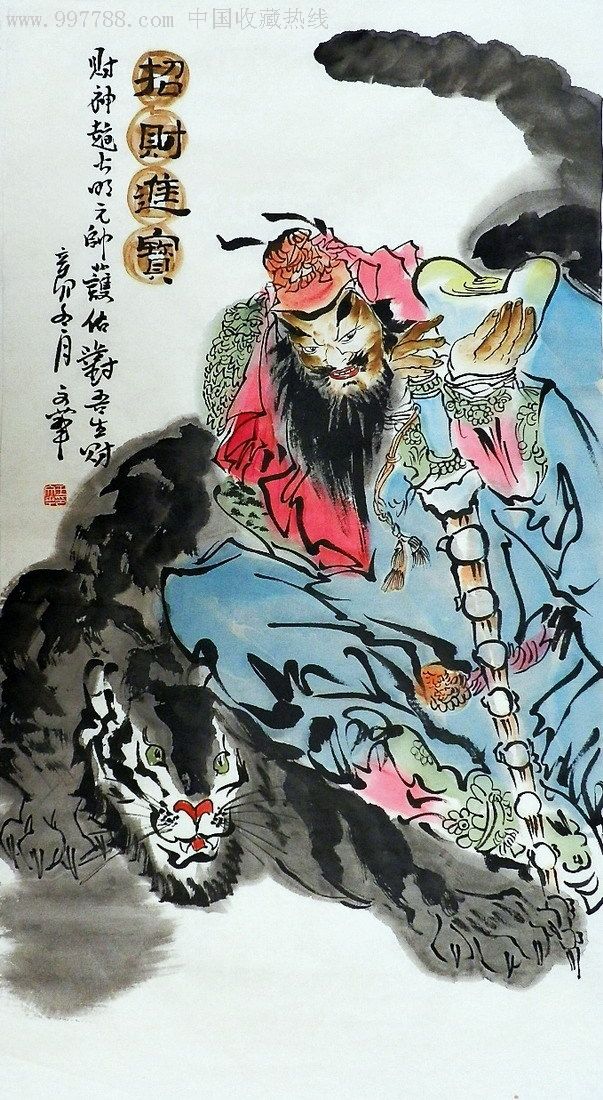 www.997788.com 中国收藏热线
招財進寳
财神趙公明元帥護佑對吾生财
辛卯年月文華